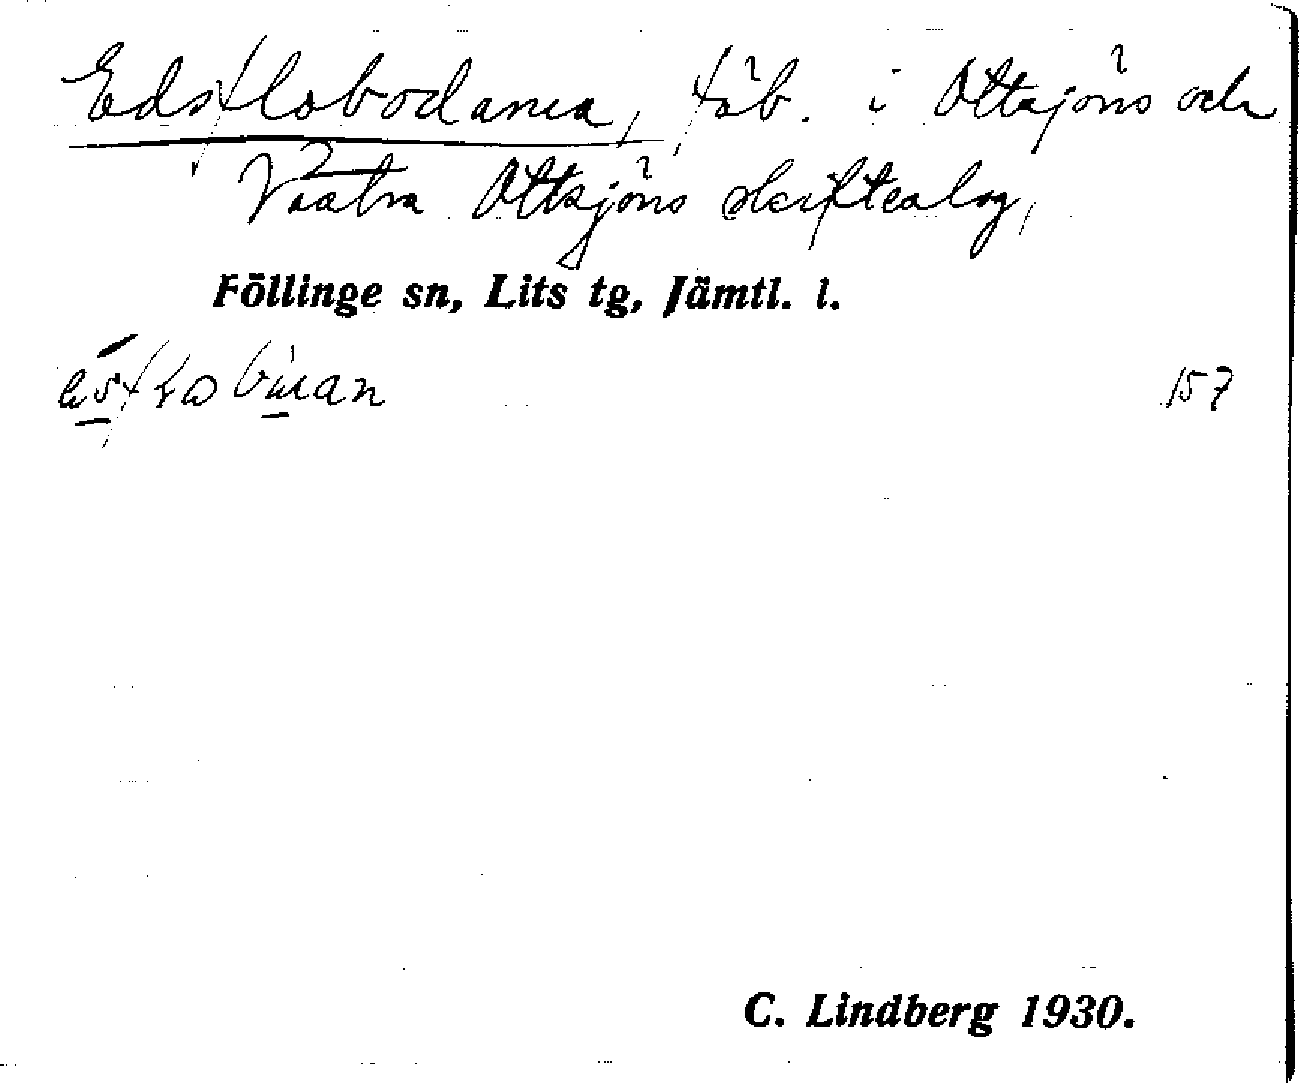 Edsflobodarna, fäb. i Ottsjöns och
Västra Ottsjöns skifteslag,
Föllinge sn, Lits tg, Jämtl. l.
157
C. Lindberg 1930.